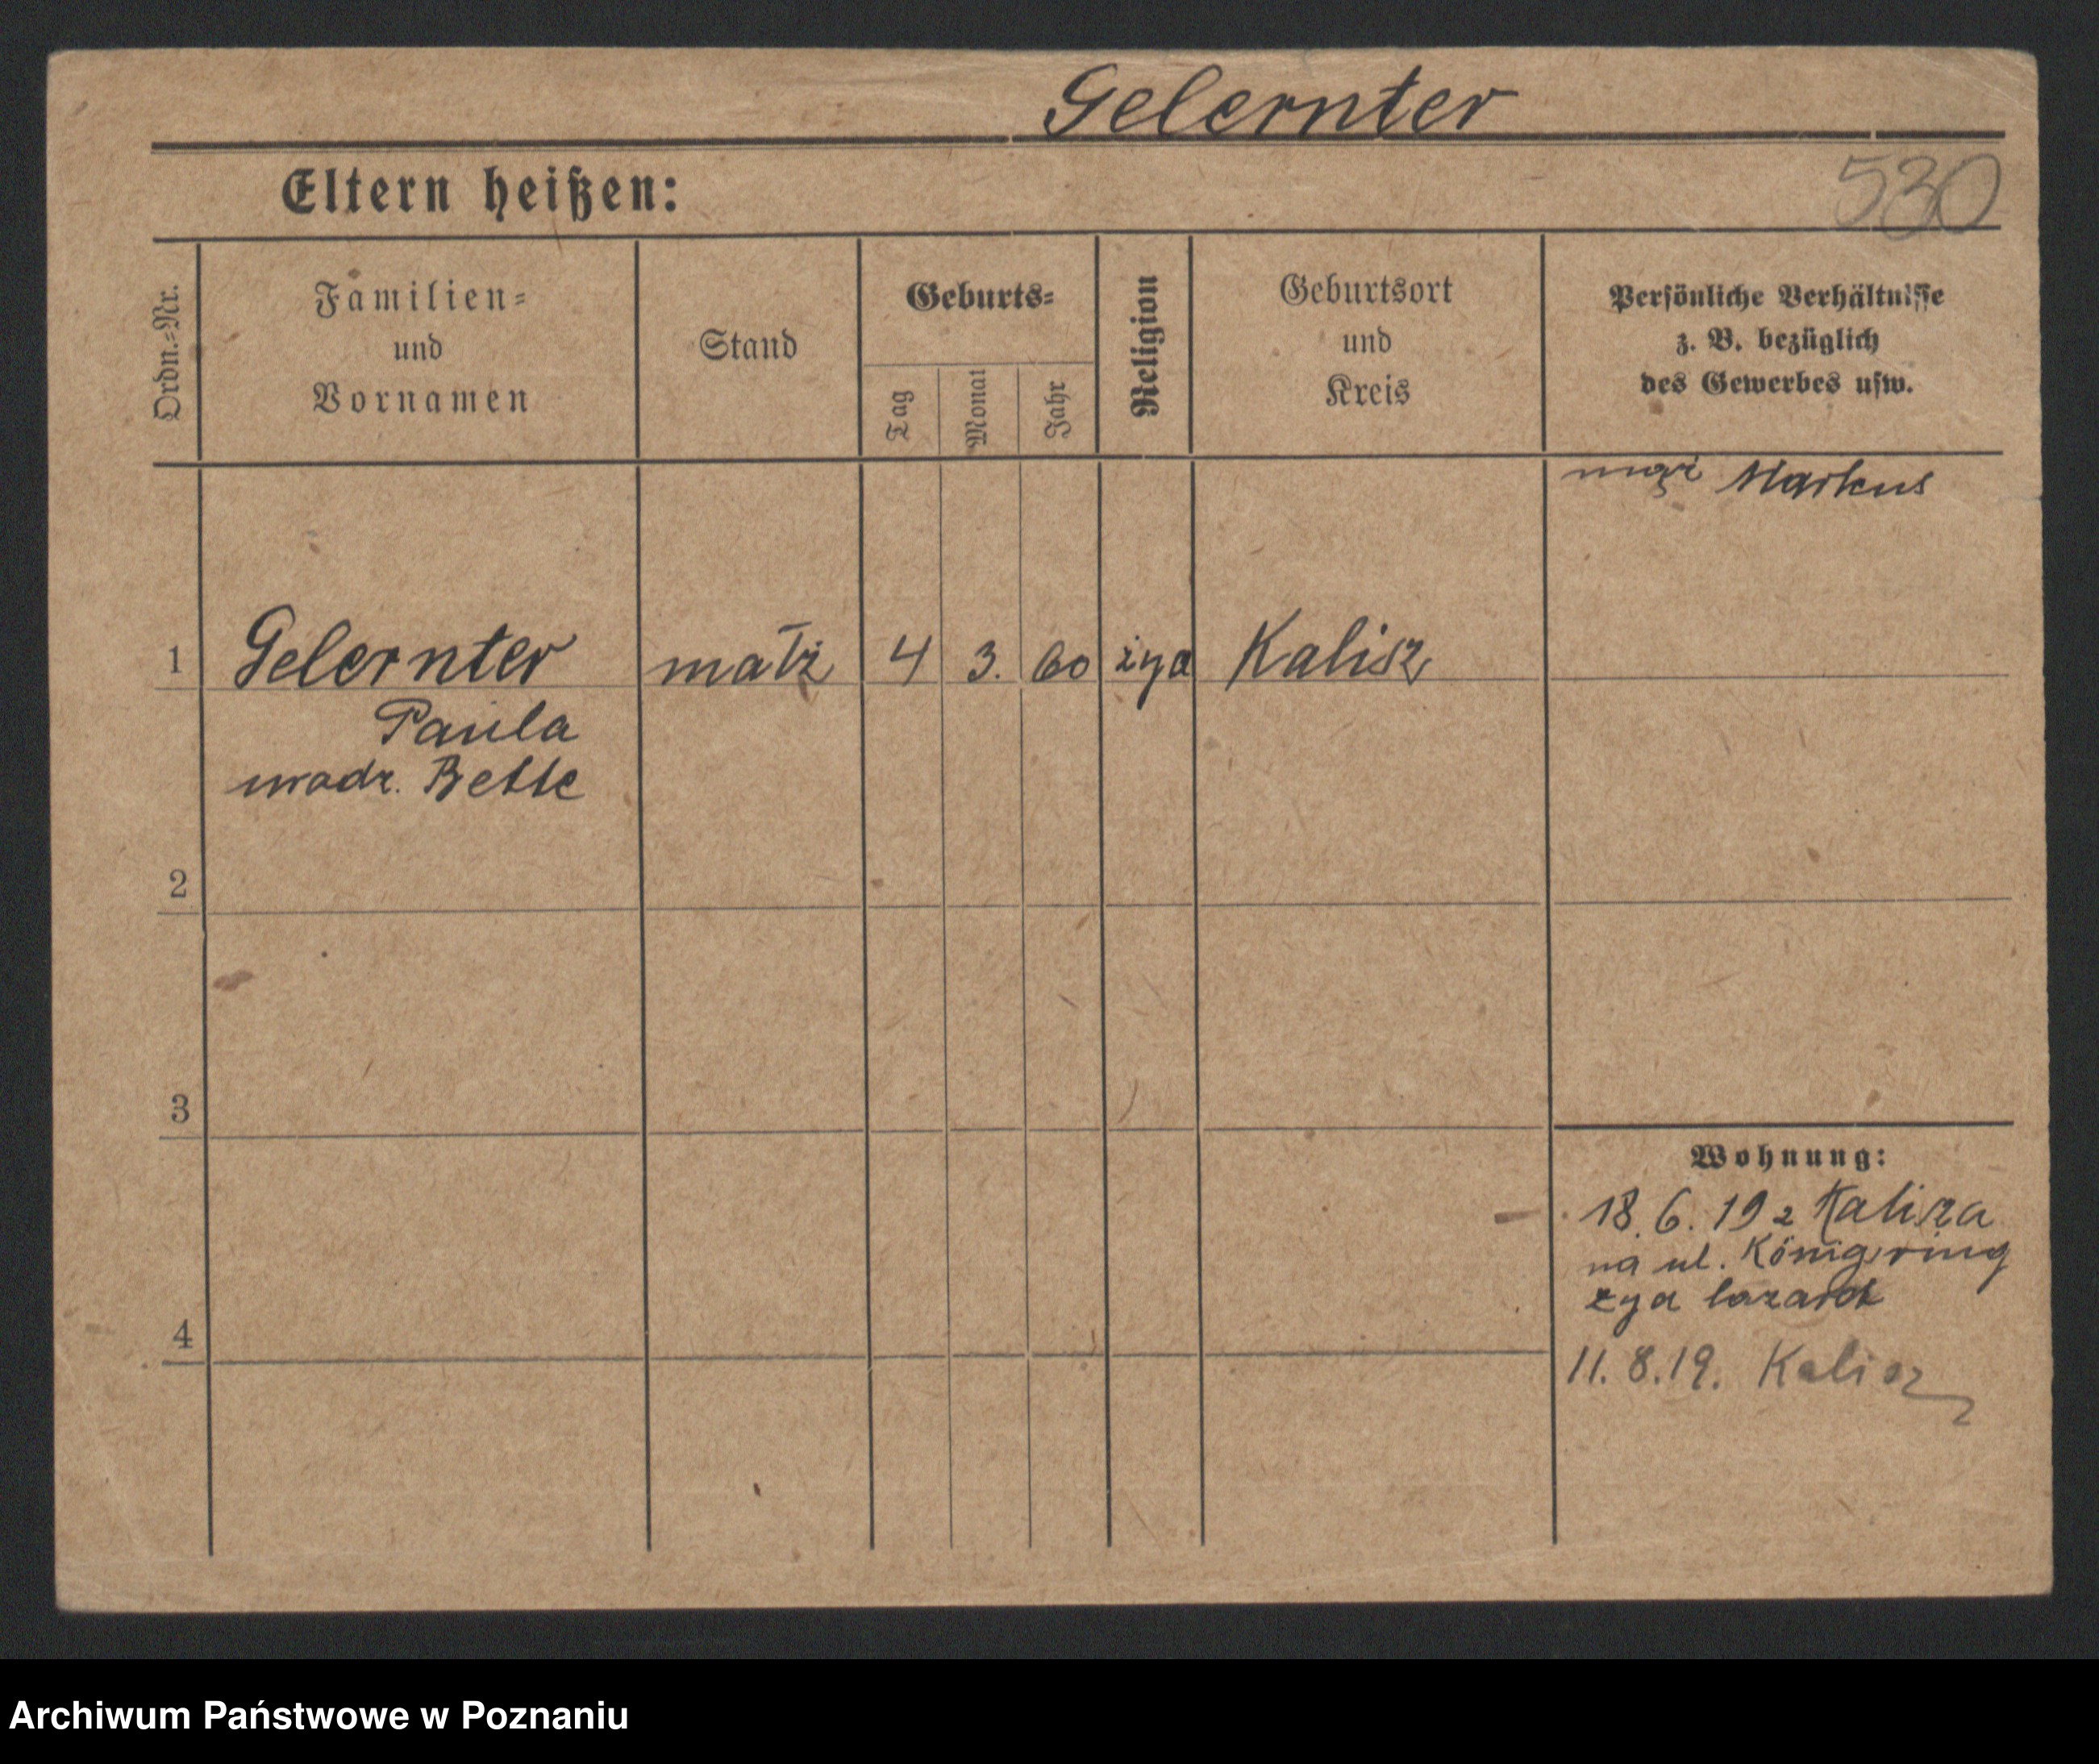 Gelernter
Eltern heißen:
530
Ordn.=Nr.
Familien=
und
Vornamen
Stand
Geburts=
Tag
Monat
Jahr
Religion
Geburtsort
und
Kreis
Persönliche Verhältnisse
z. B. bezüglich
des Gewerbes usw.
mąż Markus
1 Gelernter małż 4 3. 60 żyd Kalisz
Paula
urodz.
2
3
4
Wohnung:
18.6.19 z Kalisza
na ul. Königsring
żyd lazaret
11.8.19. Kalisz
Archiwum Państwowe w Poznaniu